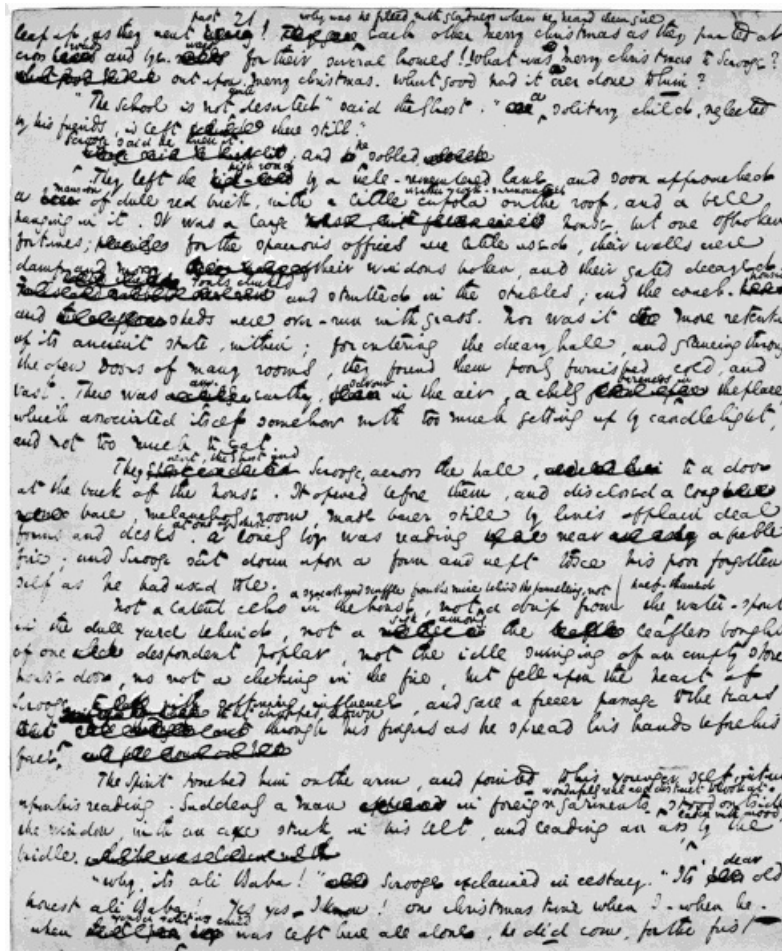 past 21 why was he filled with gladness when he heard them give
leap up, as they went each other merry christmas as they parted at
cross roads and bye ways for their several homes! What was merry christmas to Scrooge?
out upon merry christmas. What good had it ever done to him?
quite
"The school is not deserted" said the Ghost. "a solitary child, neglected
by his friends, is left there still."
Scrooge said he knew it.
and he sobbed
high road
They left the by a well-remembered lane, and soon approached
mansion weather-cock-surmounted
a of dull red brick, with a little cupola on the roof, and a bell
hanging in it. It was a large house, but one of broken
fortunes; for the spacious offices were little used, their walls were
damp and mossy their windows broken, and their gates decayed.
Fowls clucked
and strutted in the stables; and the coach-houses
and sheds were over-run with grass. Nor was it more retentive
of its ancient state, within; for entering the dreary hall, and glancing through
the open doors of many rooms, they found them poorly furnished, cold, and
an savour bareness in
vast. There was earthy, in the air, a chilly the place,
which associated itself somehow with too much getting up by candlelight,
and not too much to eat.
went, the Ghost and
They Scrooge, across the hall, to a door
at the back of the house. It opened before them, and disclosed a long
bare melancholy room, made barer still by lines of plain deal
at one of which
forms and desks. a lonely boy was reading near a feeble
fire; and Scrooge sat down upon a form and wept to see his poor forgotten
self as he had used to be.
a squeak and scuffle from the mice behind the panneling, not half-thawed
Not a latent echo in the house, not a drip from the water-spout
sigh among
in the dull yard behind, not a the leafless boughs
of one despondent poplar, not the idle swinging of an empty store
house door, no not a clicking in the fire, but fell upon the heart of
Scrooge with softening influence, and gave a freer passage to the tears,
that dropped down
through his fingers as he spread his hands before his
face.
The Spirit touched him on the arm, and pointed to his younger self intent
wonderfully real and distinct to look at
upon his reading. Suddenly a man in foreign garments stood outside
the window, with an axe stuck in his belt, and leading an ass by the
bridle.
dear
"Why, its ali Baba!" Scrooge exclaimed in ecstacy. "Its old
honest ali Baba! Yes yes I know! one christmas time when - when he -
yonder solitary child
when was left here all alone, he did come, for the first